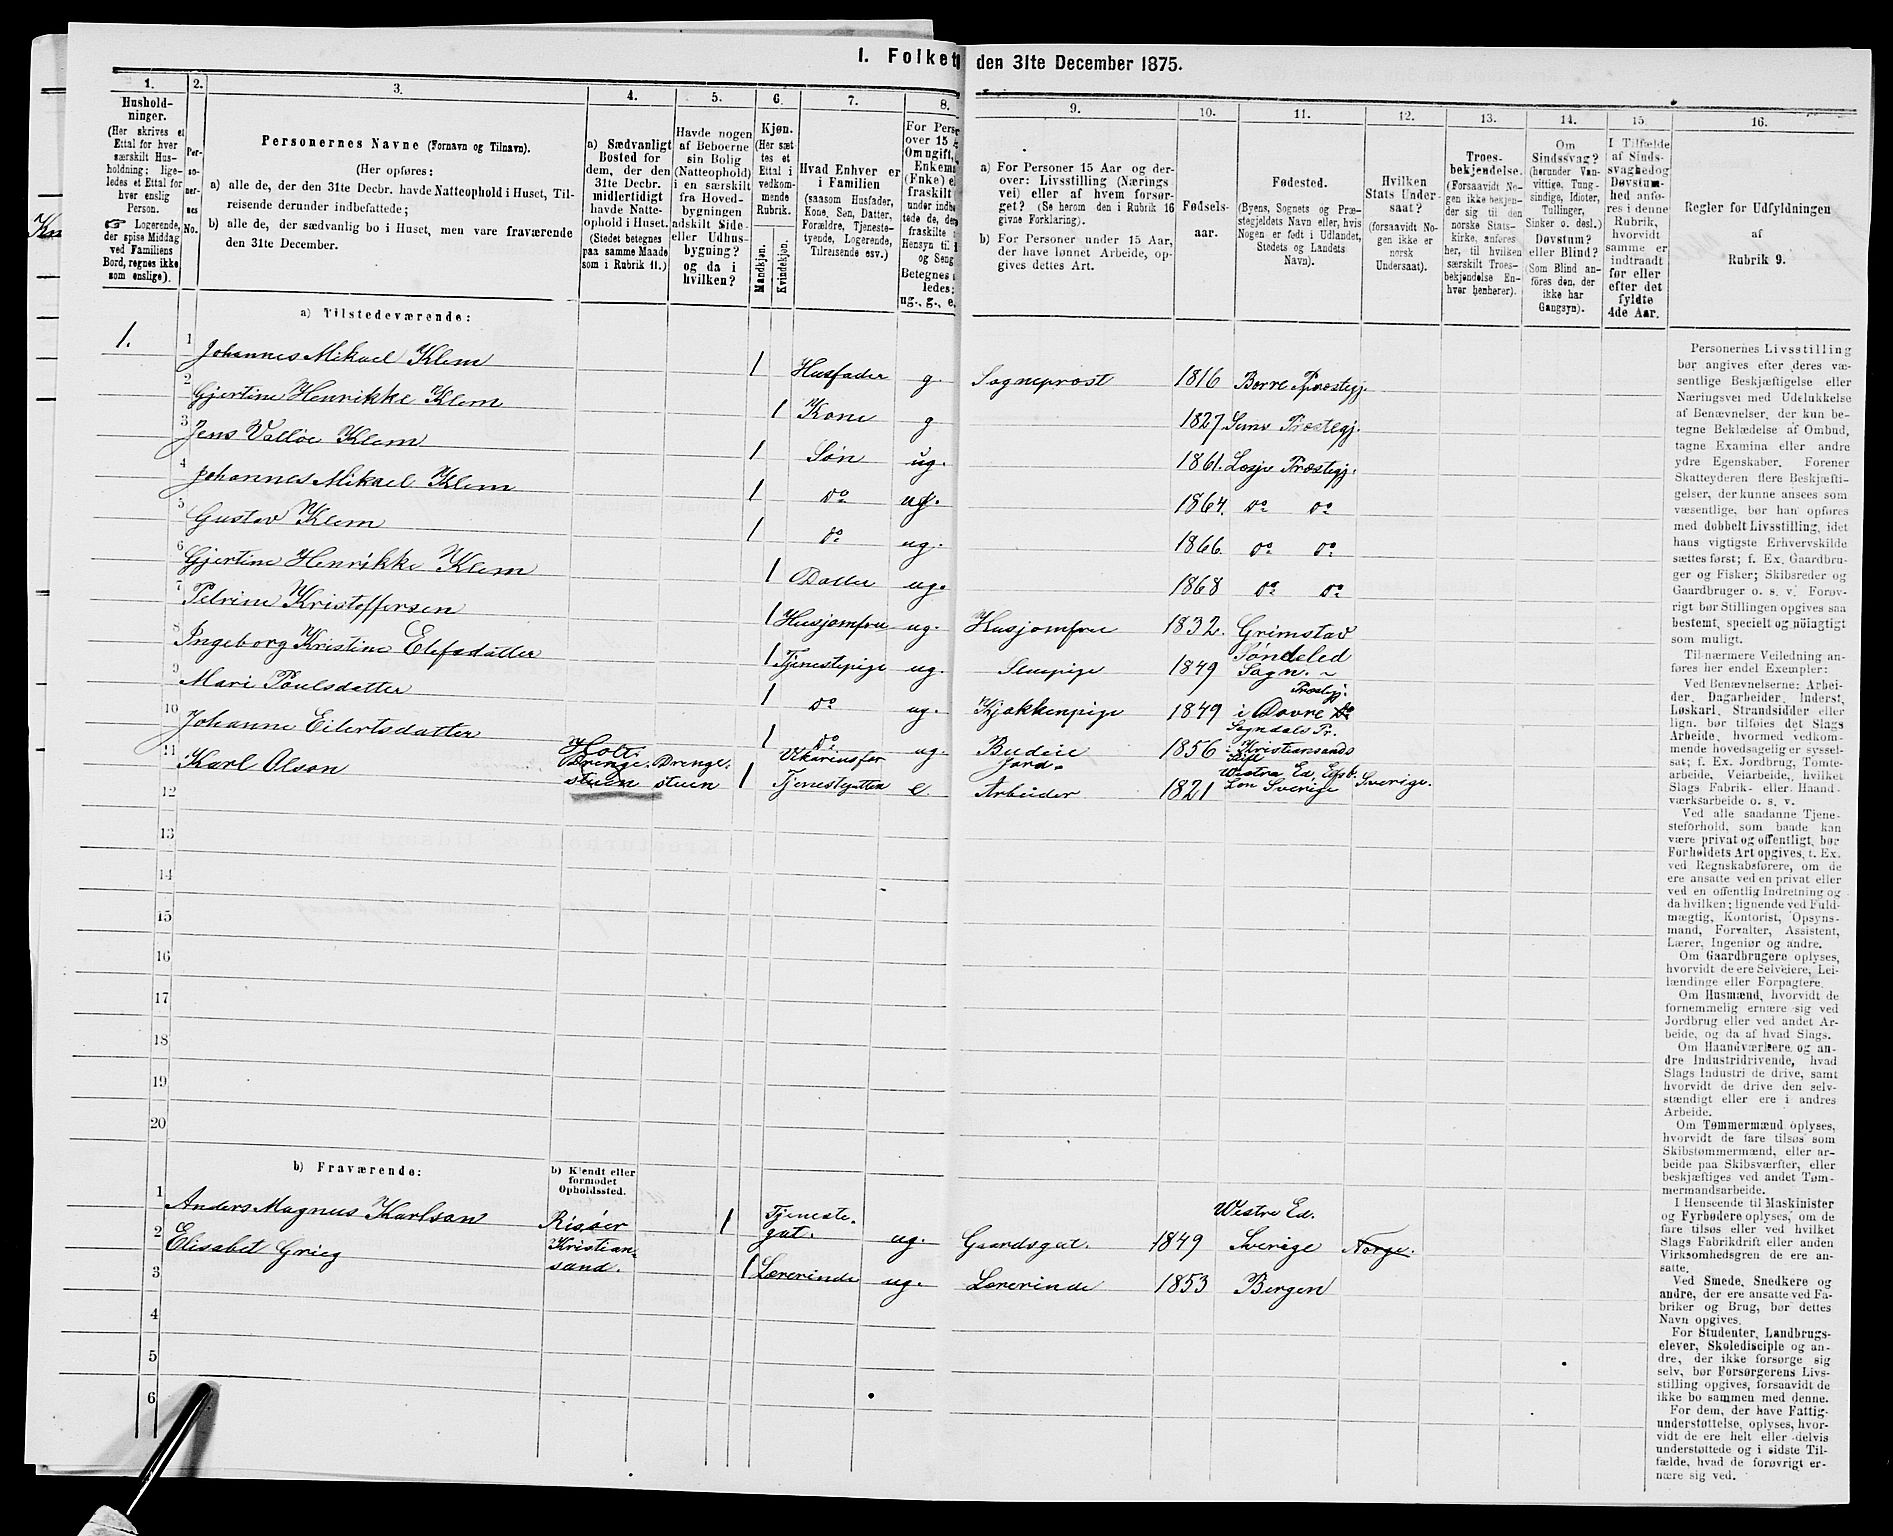 I. Folket den 31te December 1875.
1. 2. 3. 4. 5. 6. 7. 8. 9. 10. 11. 12. 13. 14. 15. 16.
Hushold-
ninger.
(Her skrives et
Ettal for hver
særskilt Hus-
holdning; lige-
ledes et Ettal for
hver enslig
Person.
☞ Logerende,
der spise Middag
ved Familiens
Bord, regnes ikke
som enslige).
Per-
so-
ner-
nes
No.
Personernes Navne (Fornavn og Tilnavn).
(Her opføres:
a) alle de, der den 31te Decbr. havde Natteophold i Huset, Til-
reisende derunder indbefattede;
b) alle de, der sædvanlig bo i Huset, men vare fraværende
den 31te December.
a) Sædvanligt
Bosted for
dem, der den
31te Decbr.
midlertidigt
havde Natte-
ophold i Huset.
(Stedet betegnes
paa samme Maade
som i Rubrik 11.)
Havde nogen
af Beboerne
sin Bolig
(Natteophold)
i en særskilt
fra Hoved-
bygningen
adskilt Side-
eller Udhus-
bygning?
og da i
hvilken?
Kjøn.
(Her sæt-
tes et
Ettal i
vedkom-
mende
Rubrik.
Mandkjøn.
Kvindekjøn.
Hvad Enhver er
i Familien
(saasom Husfader,
Kone, Søn, Datter,
Forældre, Tjeneste-
tyende, Logerende,
Tilreisende osv.)
For Perso
over 15
Om ugift,
Enkem
(Fnke) e
fraskilt
under indbe
tede de, der
fraskilte
Hensyn til
og Seng
Betegnes
ledes:
ug., g., e,
a) For Personer 15 Aar og der-
over: Livsstilling (Nærings-
vei) eller af hvem forsør-
get? (Se herom den i Rubrik 16
givne Forklaring).
b) For Personer under 15 Aar,
der have lønnet Arbeide, op-
gives dettes Art.
Fødsels-
aar.
Fødested.
(Byens, Sognets og Præ-
stegjeldets Navn eller, hvis
Nogen er født i Udlandet,
Stedets og Landets
Navn).
Hvilken
Stats Under-
saat?
(forsaavidt No-
gen ikke er
norsk
Undersaat).
Troes-
bekjendelse.
(Forsaavidt No-
gen ikke bekjen-
der sig til den
norske Stats-
kirke, anføres
her, til hvilken
særskilt Troes-
bekjendelse En-
hver henhører).
Om
Sindssvag?
(herunder Van-
vittige, Tung-
sindige, Idioter,
Tullinger,
Sinker o. desl.)
Døvstum?
eller Blind?
(Som Blind an-
føres den, der
ikke har
Gangsyn).
I Tilfælde
af Sinds-
svaghed og
Døvstum-
hed anfø-
res i denne
Rubrik,
hvorvidt
samme er
indtraadt
før eller
efter det
fyldte
4de Aar.
Regler for Udfyldningen
af
Rubrik 9.
a) Tilstedeværende:
1. 1 Johannes Mikael Klem 1 Husfader g. Sogneprost 1816 Borre Præstegj.
2 Gjertine Henrikke Klem 1 Kone g 1827 Præstegj.
3 Jens Valløe Klem 1 Søn ug. 1861. Lesje Præstegj.
4 Johannes Mikael Klem 1 do ug. 1864. do do
5 Gustav Klem 1 do ug. 1866. do do
6 Gjertine Henrikke Klem 1 Datter ug. 1868 do do
7 Petrine Kristoffersen 1 Husjomfru ug. Husjomfru 1832. Grimstad
8 Ingeborg Kristine Elefsdatter 1 Tjenestepige ug. Stuepige 1849 Søndeled Sogn.
9 Mari Poulsdatter 1 do ug. Kjøkkenpige 1849 Præstegj. i Dovre
10 Johanne Eilertsdatter 1 do ug. Budeie 1856 Sogndals Pr. i Kristiansands Stift
11 Karl Olson Holt: Drenge- stuen Drenge- stuen 1 Vikarius for Tjenestegutten e. Jord- Arbeider 1821 Westra Ed, Sverige Sverige.
12
13
14
15
16
17
18
19
20
b) Fraværende:
b) Kjendt eller
formodet
Opholdssted.
1 Anders Magnus Karlson Risøer 1 Tjeneste- gut. ug. Gaardsgut. 1849 Westre Ed. Sverige Norge.
2 Elisabet Grieg Kristian- sand. 1 Lærerinde ug. Lærerinde 1853 Bergen
3
4
5
6
Personernes Livsstilling
bør angives efter deres væ-
sentlige Beskjæftigelse eller
Næringsvei med Udelukkelse
af Benævnelser, der kun be-
tegne Beklædelse af Ombud,
tagne Examina eller andre
ydre Egenskaber. Forener
Skatteyderen flere Beskjæfti-
gelser, der kunne ansees som
væsentlige, bør han opføres
med dobbelt Livsstilling, idet
hans vigtigste Erhvervskilde
sættes først; f. Ex. Gaardbru-
ger og Fisker; Skibsreder og
Gaardbruger o. s. v. Forøv-
rigt bør Stillingen opgives saa
bestemt, specielt og nöiagtigt
som muligt.
Til nærmere Veiledning an-
føres her endel Exempler:
Ved Benævnelserne: Arbei-
der, Dagarbeider, Inderst,
Løskarl, Strandsidder eller
lign. bør tilføies det Slags
Arbeide, hvormed vedkom-
mende hovedsagelig er syssel-
sat; f. Ex. Jordbrug, Tomte-
arbeide, Veiarbeide, hvilket
Slags Fabrik- eller Haand-
værksarbeide o. s. v.
Ved alle saadanne Tjene-
steforhold, som baade kan
være privat og offentligt, bør
Forholdets Art opgives, t. Ex.
ved Regnskabsførere, om de
ere ansatte ved en privat eller
ved en offentlig Indretning og
da hvilken; lignende ved Fuld-
mægtig, Kontorist, Opsyns-
mand, Forvalter, Assistent,
Lærer, Ingeniør og andre.
Om Gaardbrugere oplyses,
hvorvidt de ere Selveiere, Lei-
lændinge eller Forpagtere.
Om Husmænd, hvorvidt de
fornemmelig ernære sig ved
Jordbrug eller ved andet Ar-
beide, og da af hvad Slags.
Om Haandværkere og an-
dre Industridrivende, hvad
Slags Industri de drive, samt
hvorvidt de drive den selv-
stændigt eller ere i andres
Arbeide.
Om Tømmermænd oplyses,
hvorvidt de fare tilsøs som
Skibstømmermænd, eller ar-
beide paa Skibsværfter, eller
beskjæftiges ved andet Tøm-
mermandsarbeide.
I Henseende til Maskinister
og Fyrbødere oplyses, om de
fare tilsøs eller ved hvilket
Slags Fabrikdrift eller anden
Virksomhedsgren de ere an-
satte.
Ved Smede, Snedkere og
andre, der ere ansatte ved Fa-
briker og Brug, bør dettes
Navn opgives.
For Studenter, Landbrugs-
elever, Skoledisciple og an-
dre, der ikke forsørge sig
selv, bør Forsørgerens Livs-
stilling opgives, forsaavidt de
ikke bo sammen med denne.
For dem, der have Fattig-
understøttelse, oplyses, hvor-
vidt de ere helt eller delvis
understøttede og i sidste Til-
fælde, hvad de forøvrigt er-
nære sig ved.